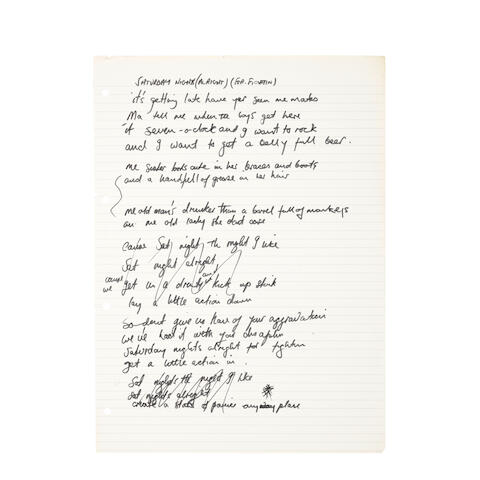 SATURDAY NIGHTS (ALRIGHT) (FOR FIGHTIN)
it's getting late have yer seen me mates
Ma tell me when the boys get here
it seven-o-clock and I want to rock
and I want to get a belly full beer.
me sister looks cute in her braces and boots
and a handfull of grease in her hair
me old man's drunker than a barrel full of monkeys
an me old lady she dont care
cause Sat night's the night I like
Sat night alright
and
cause we get in a drunk kick up stink
lay a little action down
so dont give us none of your aggravation
we've had it with your disaplin
Saturday nights alright for fightin
get a little action in.
Sat nights the night I like
sat nights alright
create a state of panic any place